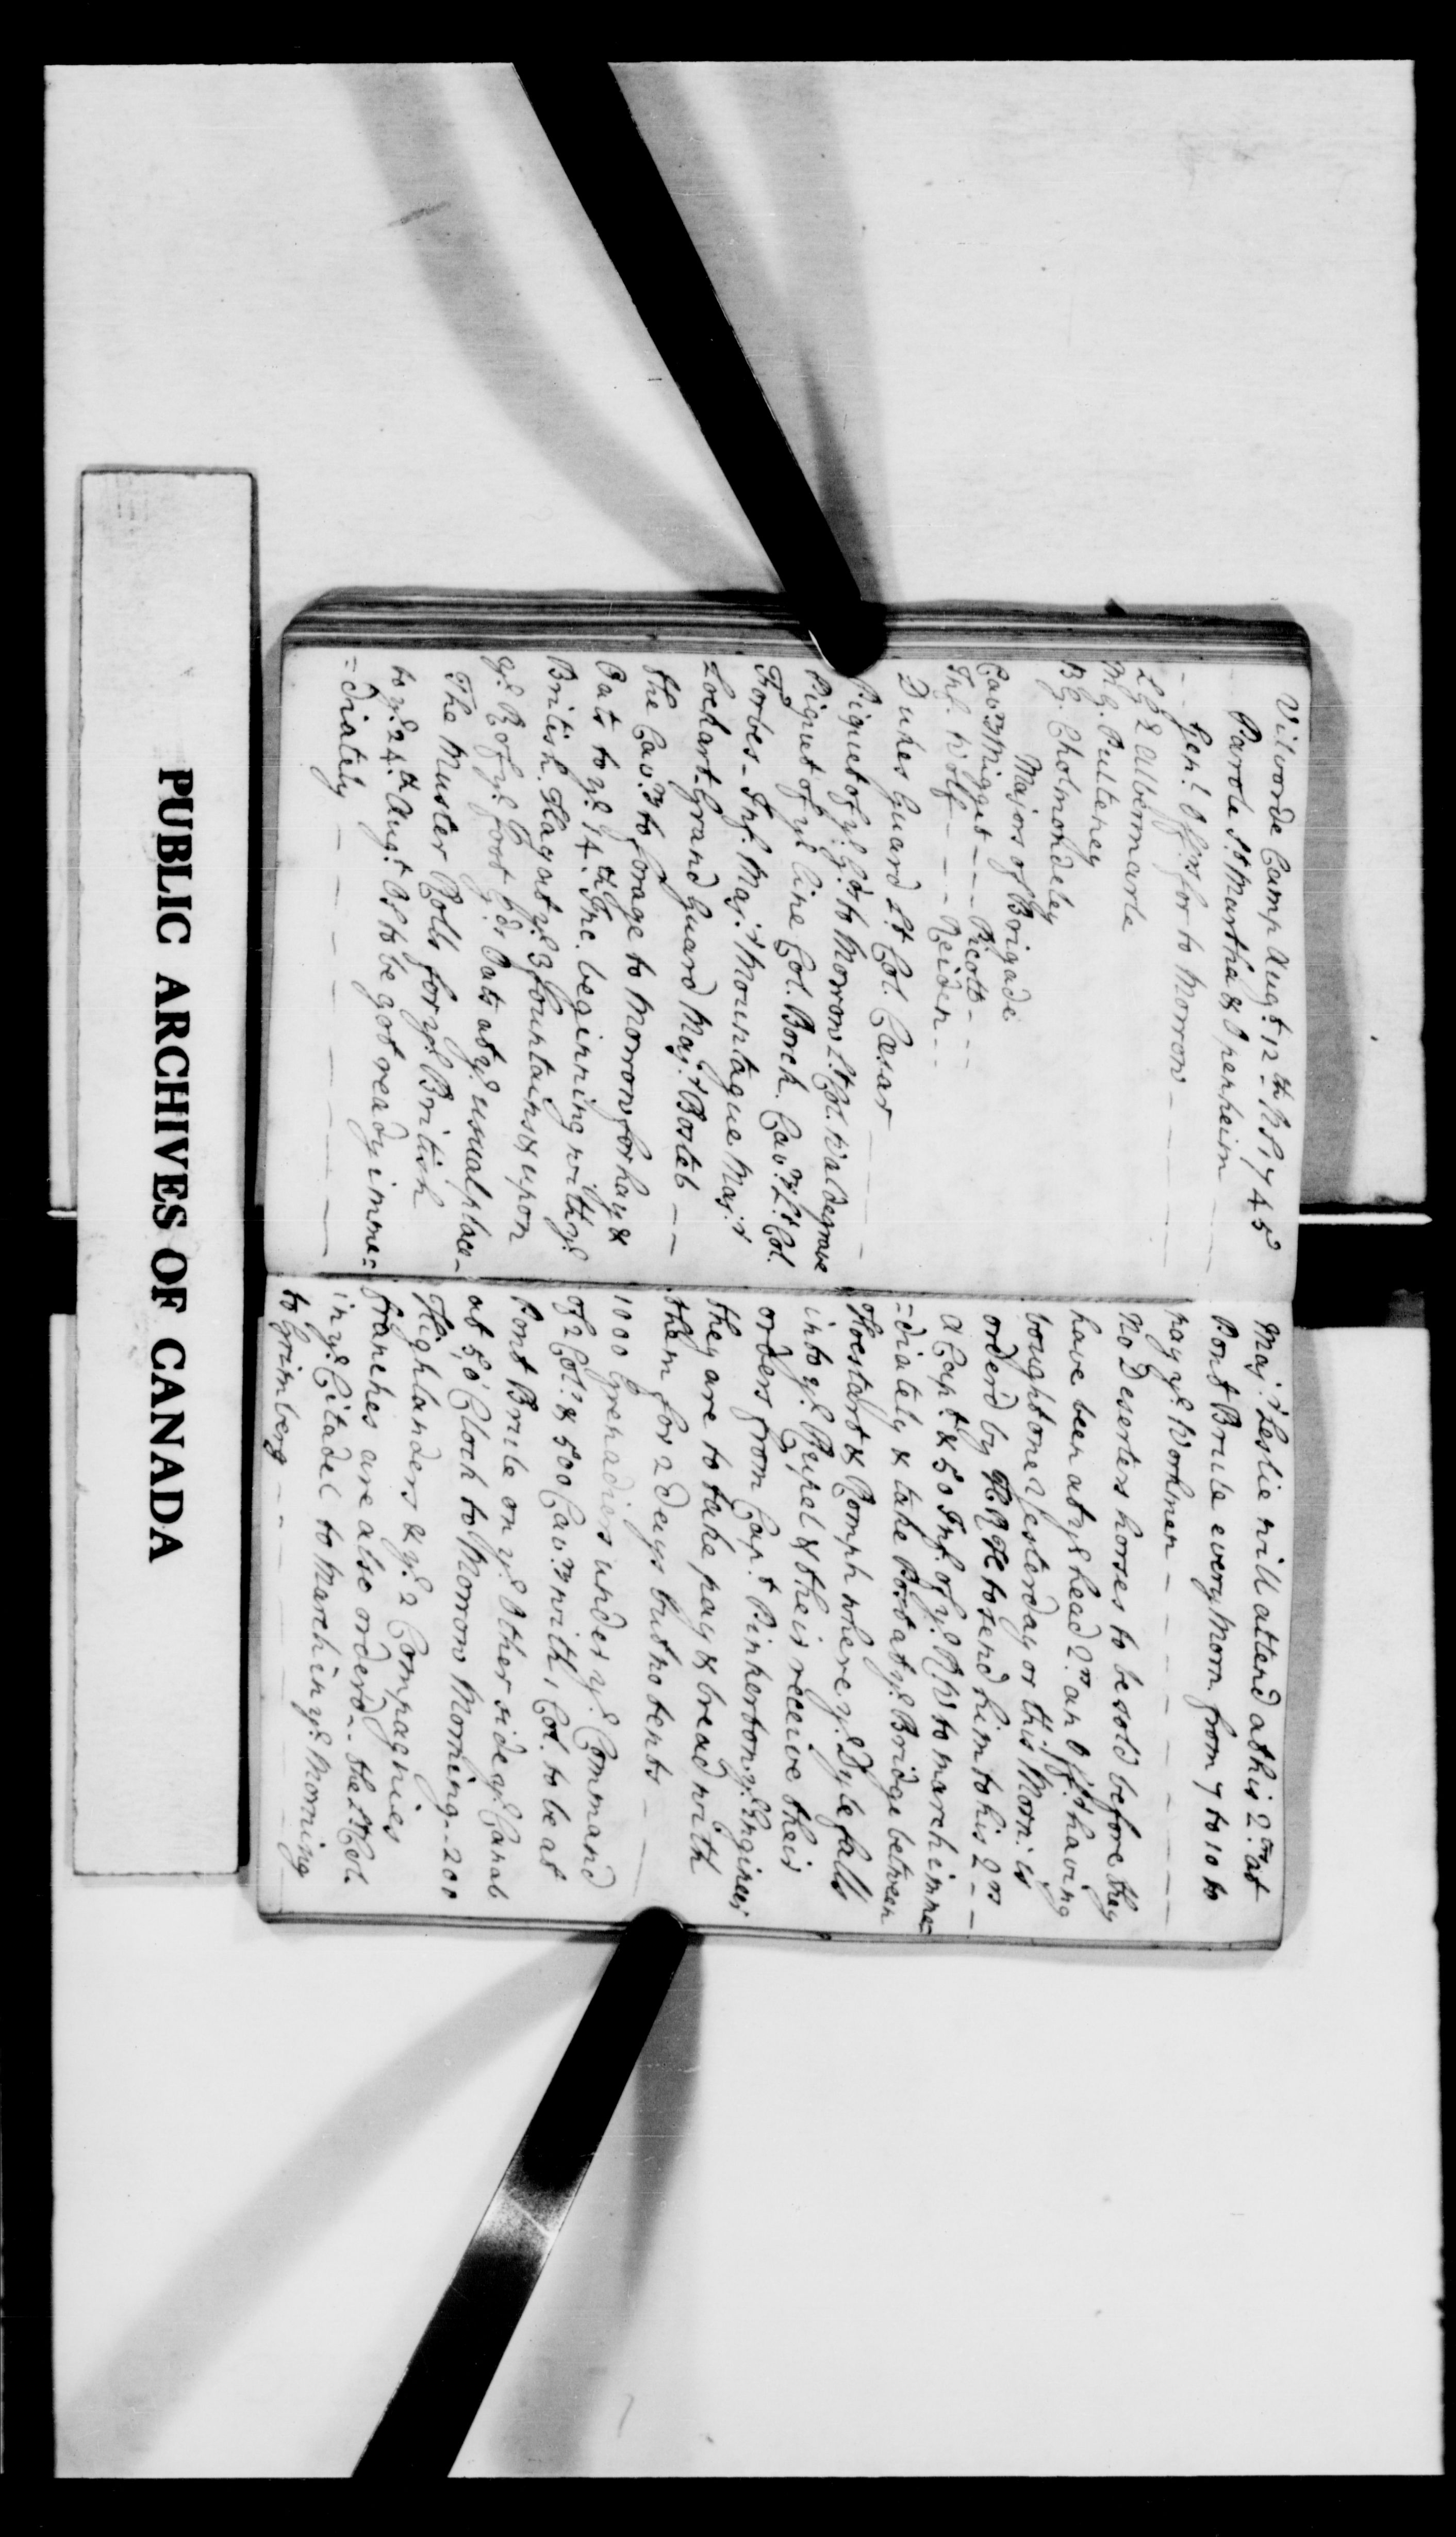 Vilvorde Camp Aug.t 12.th NS 1745
Parole S.t Martha & Openheim
Gen.l Off.rs for to Morrow
L G.l Albermarle
M G. Pulteney
B G. Cholmondeley
Majors of Brigade
Cav.ry Migget - - - Ricott - - -
Inf. Wolf - - - - Reiden - -
Dukes Guard L.t Col. Cæsar
Piquet of y.e G.ds to Morrow L.t Col. Waldegrave
Piquet of y.e line Col. Borck. Cav.ry L.t Col.
Forbes - Inf. Maj.r Mountague Maj.r
Lockart - Grand Guard Maj.r Bosteb
the Cav.ry to forage to Morrow for hay &
Oats to y.e 14.th Inc. beginning with y.e
British. Hay at y.e 3 fountains & upon
y.e R of y.e foot G.ds Oats at y.e usual place
The Muster Rolls for y.e British
to y.e 24.th Aug.t OS to be got ready imme=
=diately
Maj.r Leslie will attend at his 2.rs at
Pont Brule every Morn. from 7 to 10 to
pay y.e Workmen
No Deserters horses to be sold before they
have been at y.e head 2.rs an Off.r having
bought one yesterday or this Morn. is
order'd by HRH to send him to his 2.rs
A Cap.t & 50 Inf. of y.e RW to march imme=
=diately & take Post at y.e Bridge between
Hoestart & Romph where y.e Dyle falls
into y.e Rupel & their receive their
orders from Cap.t Pinkerton y.e Engineer
they are to take pay & bread with
them for 2 days but no tents
1000 Grenadiers under y.e Command
of 2 Col.s & 500 Cav.ry with 1 Col. to be at
Pont Brule on y.e Other side y.e Canal
at 5 o'Clock to Morrow Morning - 200
Highlanders & y.e 2 Compagnies
franches are also order'd - the L.t Col.
in y.e Citadel to March in y.e Morning
to Grimberg
PUBLIC ARCHIVES OF CANADA